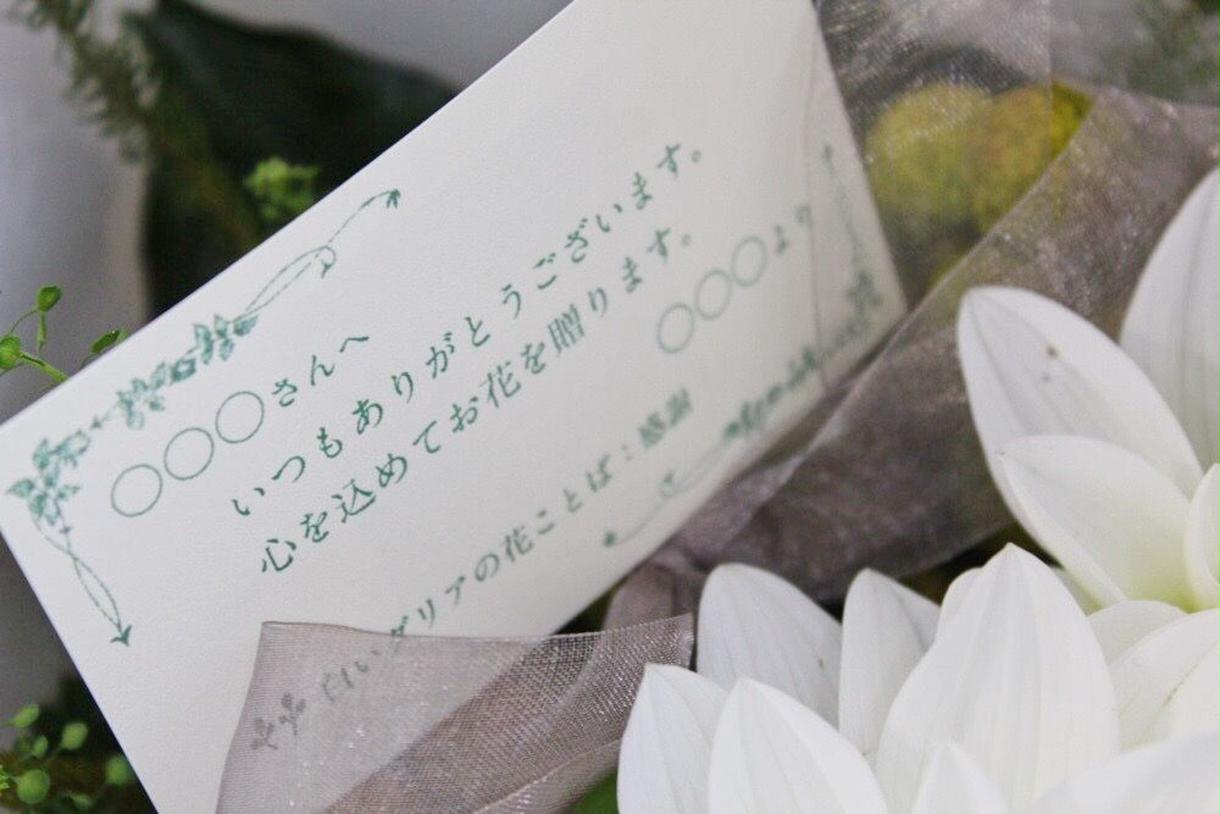 ○○○さんへ
いつもありがとうございます。
心を込めてお花を贈ります。
○○○より
白いダリアの花ことば：感謝